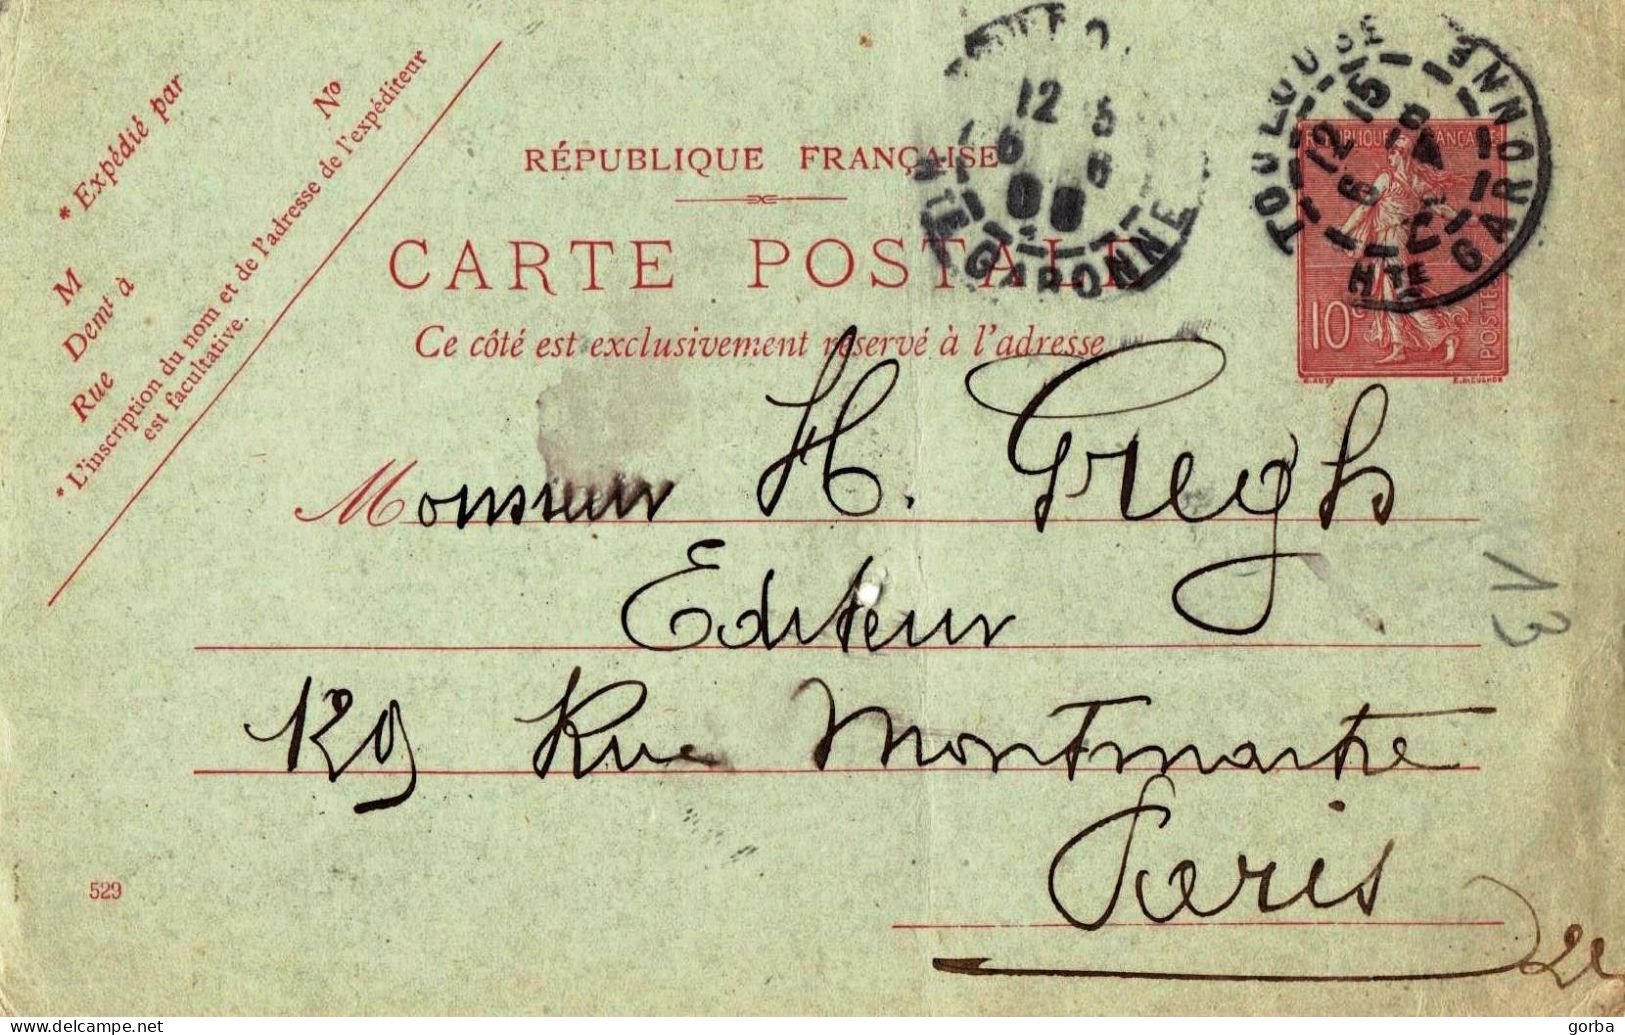 * Expédié par
M
No
Demt à
Rue
* L'inscription du nom et de l'adresse de l'expéditeur
est facultative.
RÉPUBLIQUE FRANÇAISE
CARTE POSTALE
Ce côté est exclusivement réservé à l'adresse
12
GARONNE
TOULOUSE
HTE GARONNE
12 15
RÉPUBLIQUE FRANÇAISE
10c
POSTES
Monsieur H. Gregh
Editeur
129 Rue Montmartre
Paris
13
529
gorba